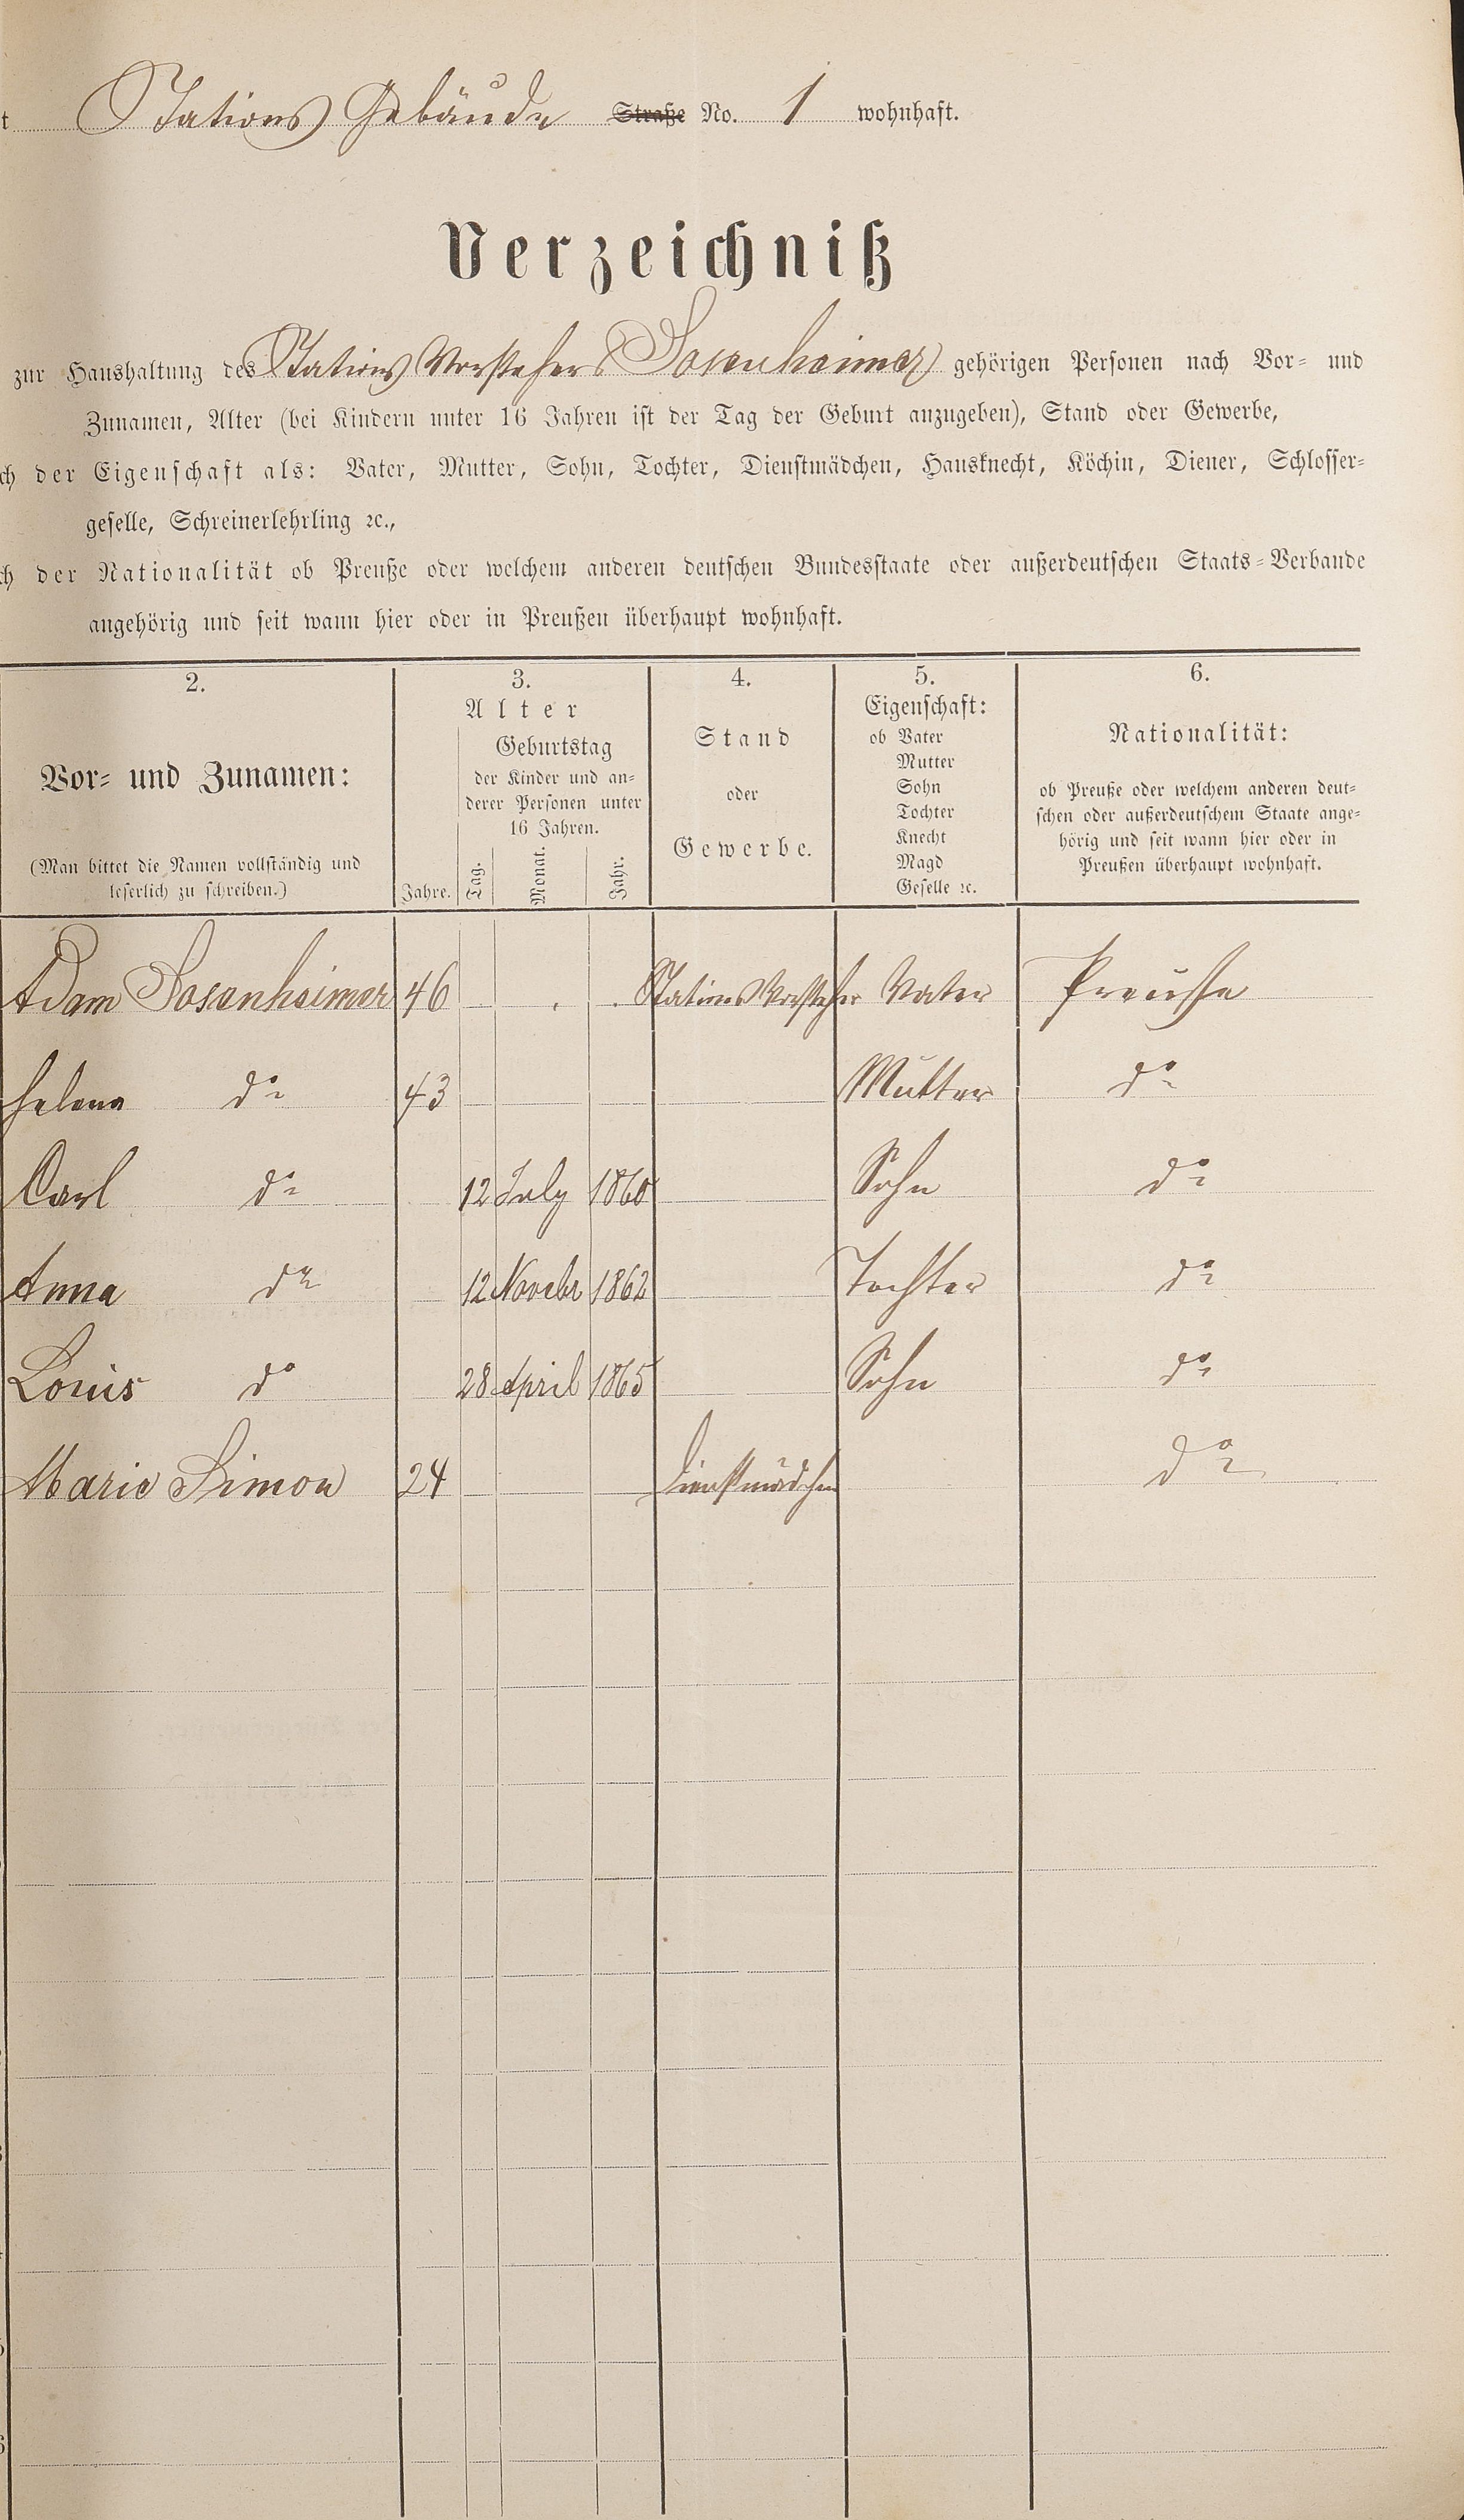 t Stations Gebäude Straße No. 1 wohnhaft.
Verzeichniß
zur Haushaltung des Stations Vorstehers Sosenheimer gehörigen Personen nach Vor- und
Zunamen, Alter (bei Kindern unter 16 Jahren ist der Tag der Geburt anzugeben), Stand oder Gewerbe,
ch der Eigenschaft als: Vater, Mutter, Sohn, Tochter, Dienstmädchen, Hausknecht, Köchin, Diener, Schlosser-
geselle, Schreinerlehrling ꝛc.,
ch der Nationalität ob Preuße oder welchem anderen deutschen Bundesstaate oder außerdeutschen Staats-Verbande
angehörig und seit wann hier oder in Preußen überhaupt wohnhaft.
2.
Vor- und Zunamen:
(Man bittet die Namen vollständig und
leserlich zu schreiben.)
3.
Alter
Jahre.
Geburtstag
der Kinder und an-
derer Personen unter
16 Jahren.
Tag. Monat. Jahr.
4.
Stand
oder
Gewerbe.
5.
Eigenschaft:
ob Vater
Mutter
Sohn
Tochter
Knecht
Magd
Geselle ꝛc.
6.
Nationalität:
ob Preuße oder welchem anderen deut-
schen oder außerdeutschem Staate ange-
hörig und seit wann hier oder in
Preußen überhaupt wohnhaft.
Adam Sosenheimer 46 Stations Vorsteher Vater Preusse
Helena do 43 Mutter do
Carl do 12 July 1860 Sohn do
Anna do 12 Novebr 1862 Tochter do
Louis do 28 April 1865 Sohn do
Marie Simon 24 Dienstmädchen do